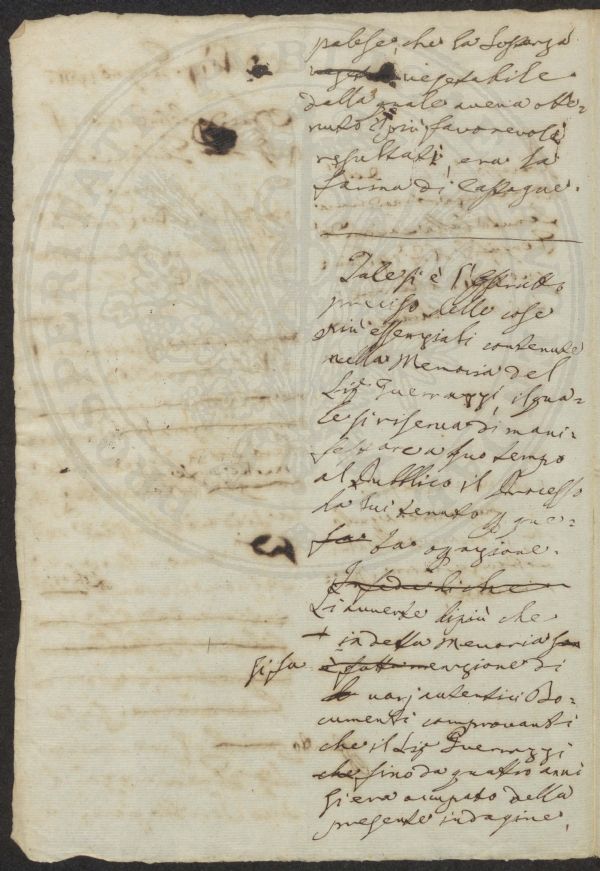 palese, che la Sostanza
vegetabile
dalla quale aveva otte=
nuto i più favorevoli
resultati, era la
farina di Castagne.
Tale si è l'Estratto
preciso delle cose
più essenziali contenute
nella Memoria del
Sig.r Guerrazzi, il qua=
le si riserva di mani=
festare a suo tempo
al Pubblico il Processo
da lui tenuto p que=
sta operazione.
Si avverte di più che
+ in detta Memoria
si fa menzione di
varj autentici Do=
cumenti comprovanti
che il Sig.r Guerrazzi
fino da quattro anni
si era occupato della
presente indagine.